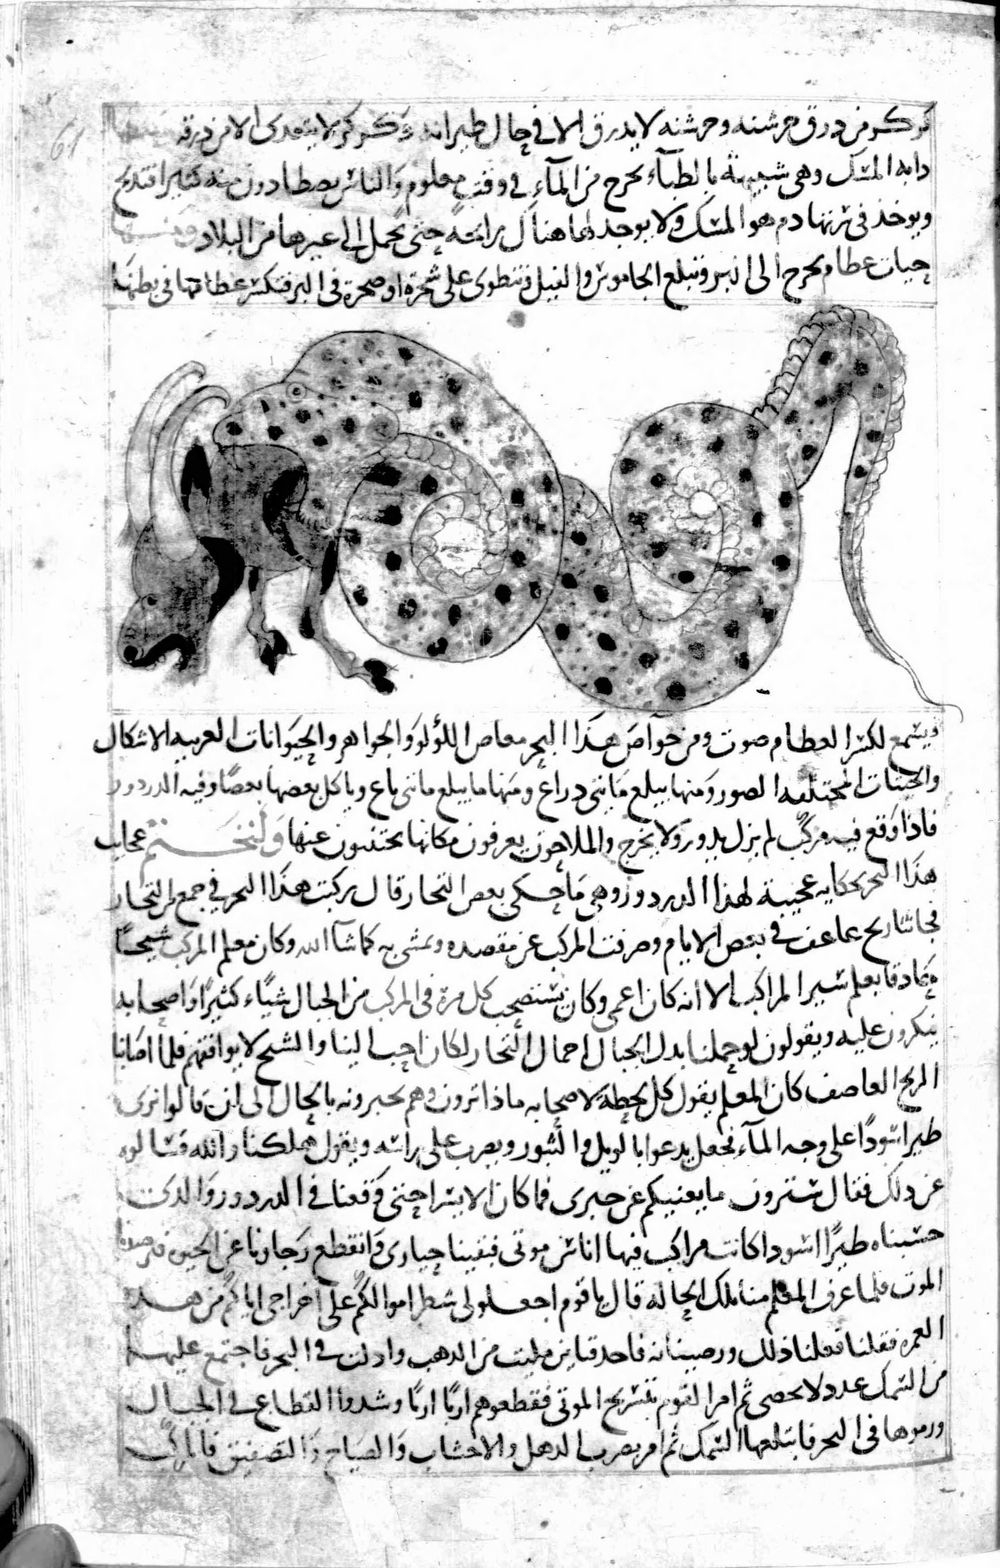 61
كركر من ذرق خرشنه وخرشنه لا يذرق الا في حال طيرانه وكركر لا يتغدى الا من ذرقه
دابه المشك وهي شبيهة بالظباء تخرج من الماء في وقت معلوم والناس يصطادون منه كثيرا فتذبح
ويوخذ في سرتها دم هو المسك ولا يوجد لها هناك رائحة حتى تحمل الى غيرها من البلاد ومنها
حيات عظام تخرج الى البر وتبلع الجاموس والفيل وتنطوى على شجرة او صخرة في البر فتكسر عظامها في بطنها
ويسمع لكسر العظام صوت ومن خواص هذا البحر مغاص اللؤلؤ والجواهر والحيوانات الغريبه الاشكال
والحيتات المختلفه الصور ومنها يبلغ مائتى دراع ومنها ما يبلغ مائتى باع وياكل بعضها بعضا وفيه الدردور
فاذا وقع فيه مركب لم يزل يدور ولا يخرج والملاحون يعرفون مكانها يجتنبون عنها ولنختم عجايب
هذا البحر بحكايه عجيبة لهذا الدردور وهي ما حكى بعض التجار قال ركبت هذا البحر في جمع من التجار
فجاتنا ريح عاصف في بعض الايام وصرفت المركب عن مقصده ومشى به كما شاء الله وكان معلم المركب شيخا
حاذقا بعلم سير المراكب الا انه كان اعمى وكان يستصحب كل مرة في المركب من الحبال شياء كثيرا واصحابه
ينكرون عليه ويقولون لو حملنا بدل الحبال احمال التجار لكان احب الينا والشيخ لا يوافقهم فلما اصابنا
الريح العاصف كان المعلم يقول كل لحظة لاصحابه ماذا ترون وهم يخبرونه بالحال الى ان قالوا نرى
طيرا اسودا على وجه الماء فجعل يدعوا بالويل والثبور ويضرب على راسه ويقول هلكنا والله فسالوه
عن ذلك فقال سترون ما يغنيكم عن خبرى فما كان الا يسرا حتى وقعنا في الدردور والذى
حسبناه طيرا اسودا كانت مراكب فيها اناس موتى فبقينا حيارى وانقطع رجاونا عن الحيوة
الموت فلما عرف المعلم منا تلك الحاله قال يا قوم اجعلوا لى شطر اموالكم على اخراجى اياكم من هذه
الغمرة فقلنا فعلنا ذلك ورضينا به فاخذ مليت من الدهن وادلت في البحر فاجتمع عليها
من السمك عدد لا يحصى ثم امر القوم بتشريح الموتى فقطعوهم اربا اربا وشدوا القطاع في الحبال
ورموها في البحر فابتلعها السمك ثم امر بضرب الدهل والاخشاب والصياح والتصفيق فاذا المركب